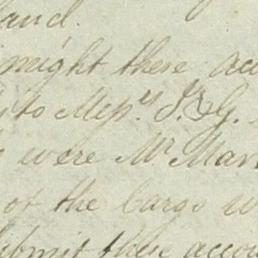 might these acc
to Messrs. J. & G.
were Mr Mar
of the Cargo w
submit these accou